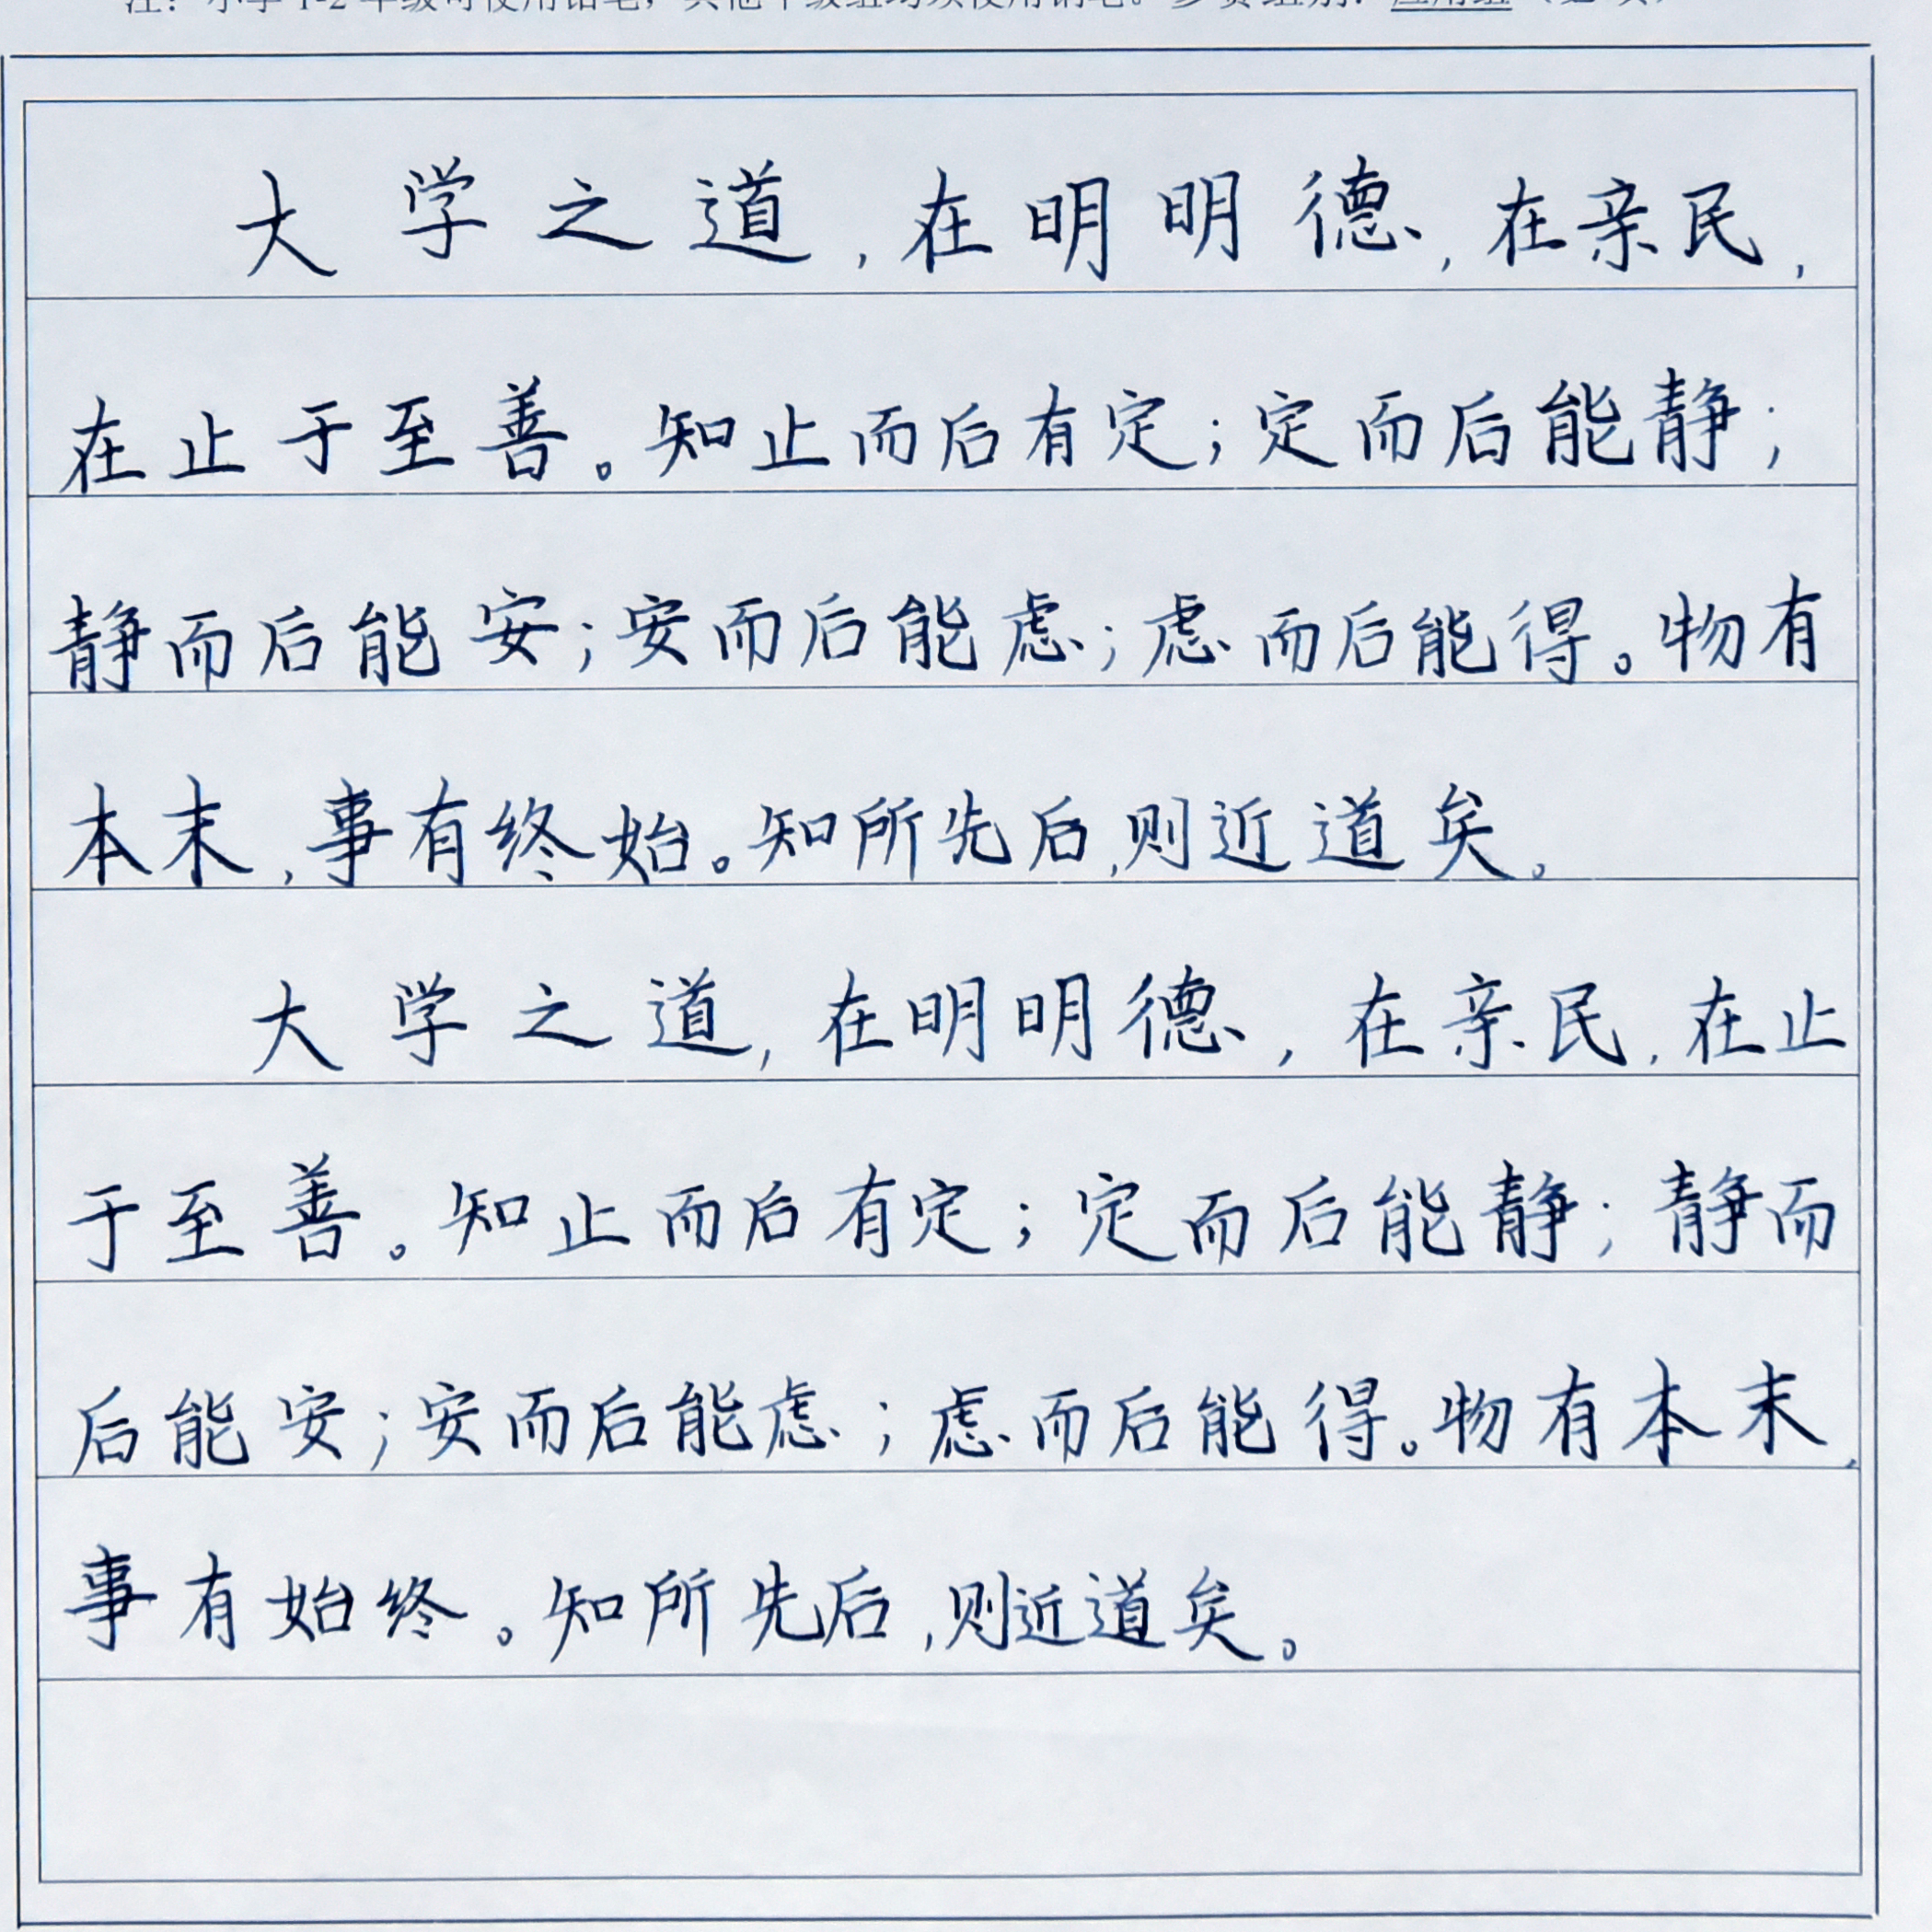 注：小学1-2年级可使用铅笔，其他年级组均须使用钢笔。参赛组别：
大学之道，在明明德，在亲民，
在止于至善。知止而后有定；定而后能静；
静而后能安；安而后能虑；虑而后能得。物有
本末，事有终始。知所先后，则近道矣。
大学之道，在明明德，在亲民，在止
于至善。知止而后有定；定而后能静；静而
后能安；安而后能虑；虑而后能得。物有本末，
事有始终。知所先后，则近道矣。